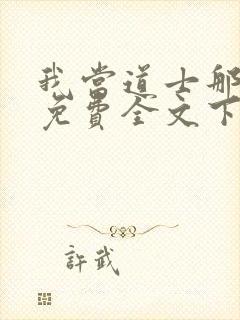 我當道士那
免費全文下
許武